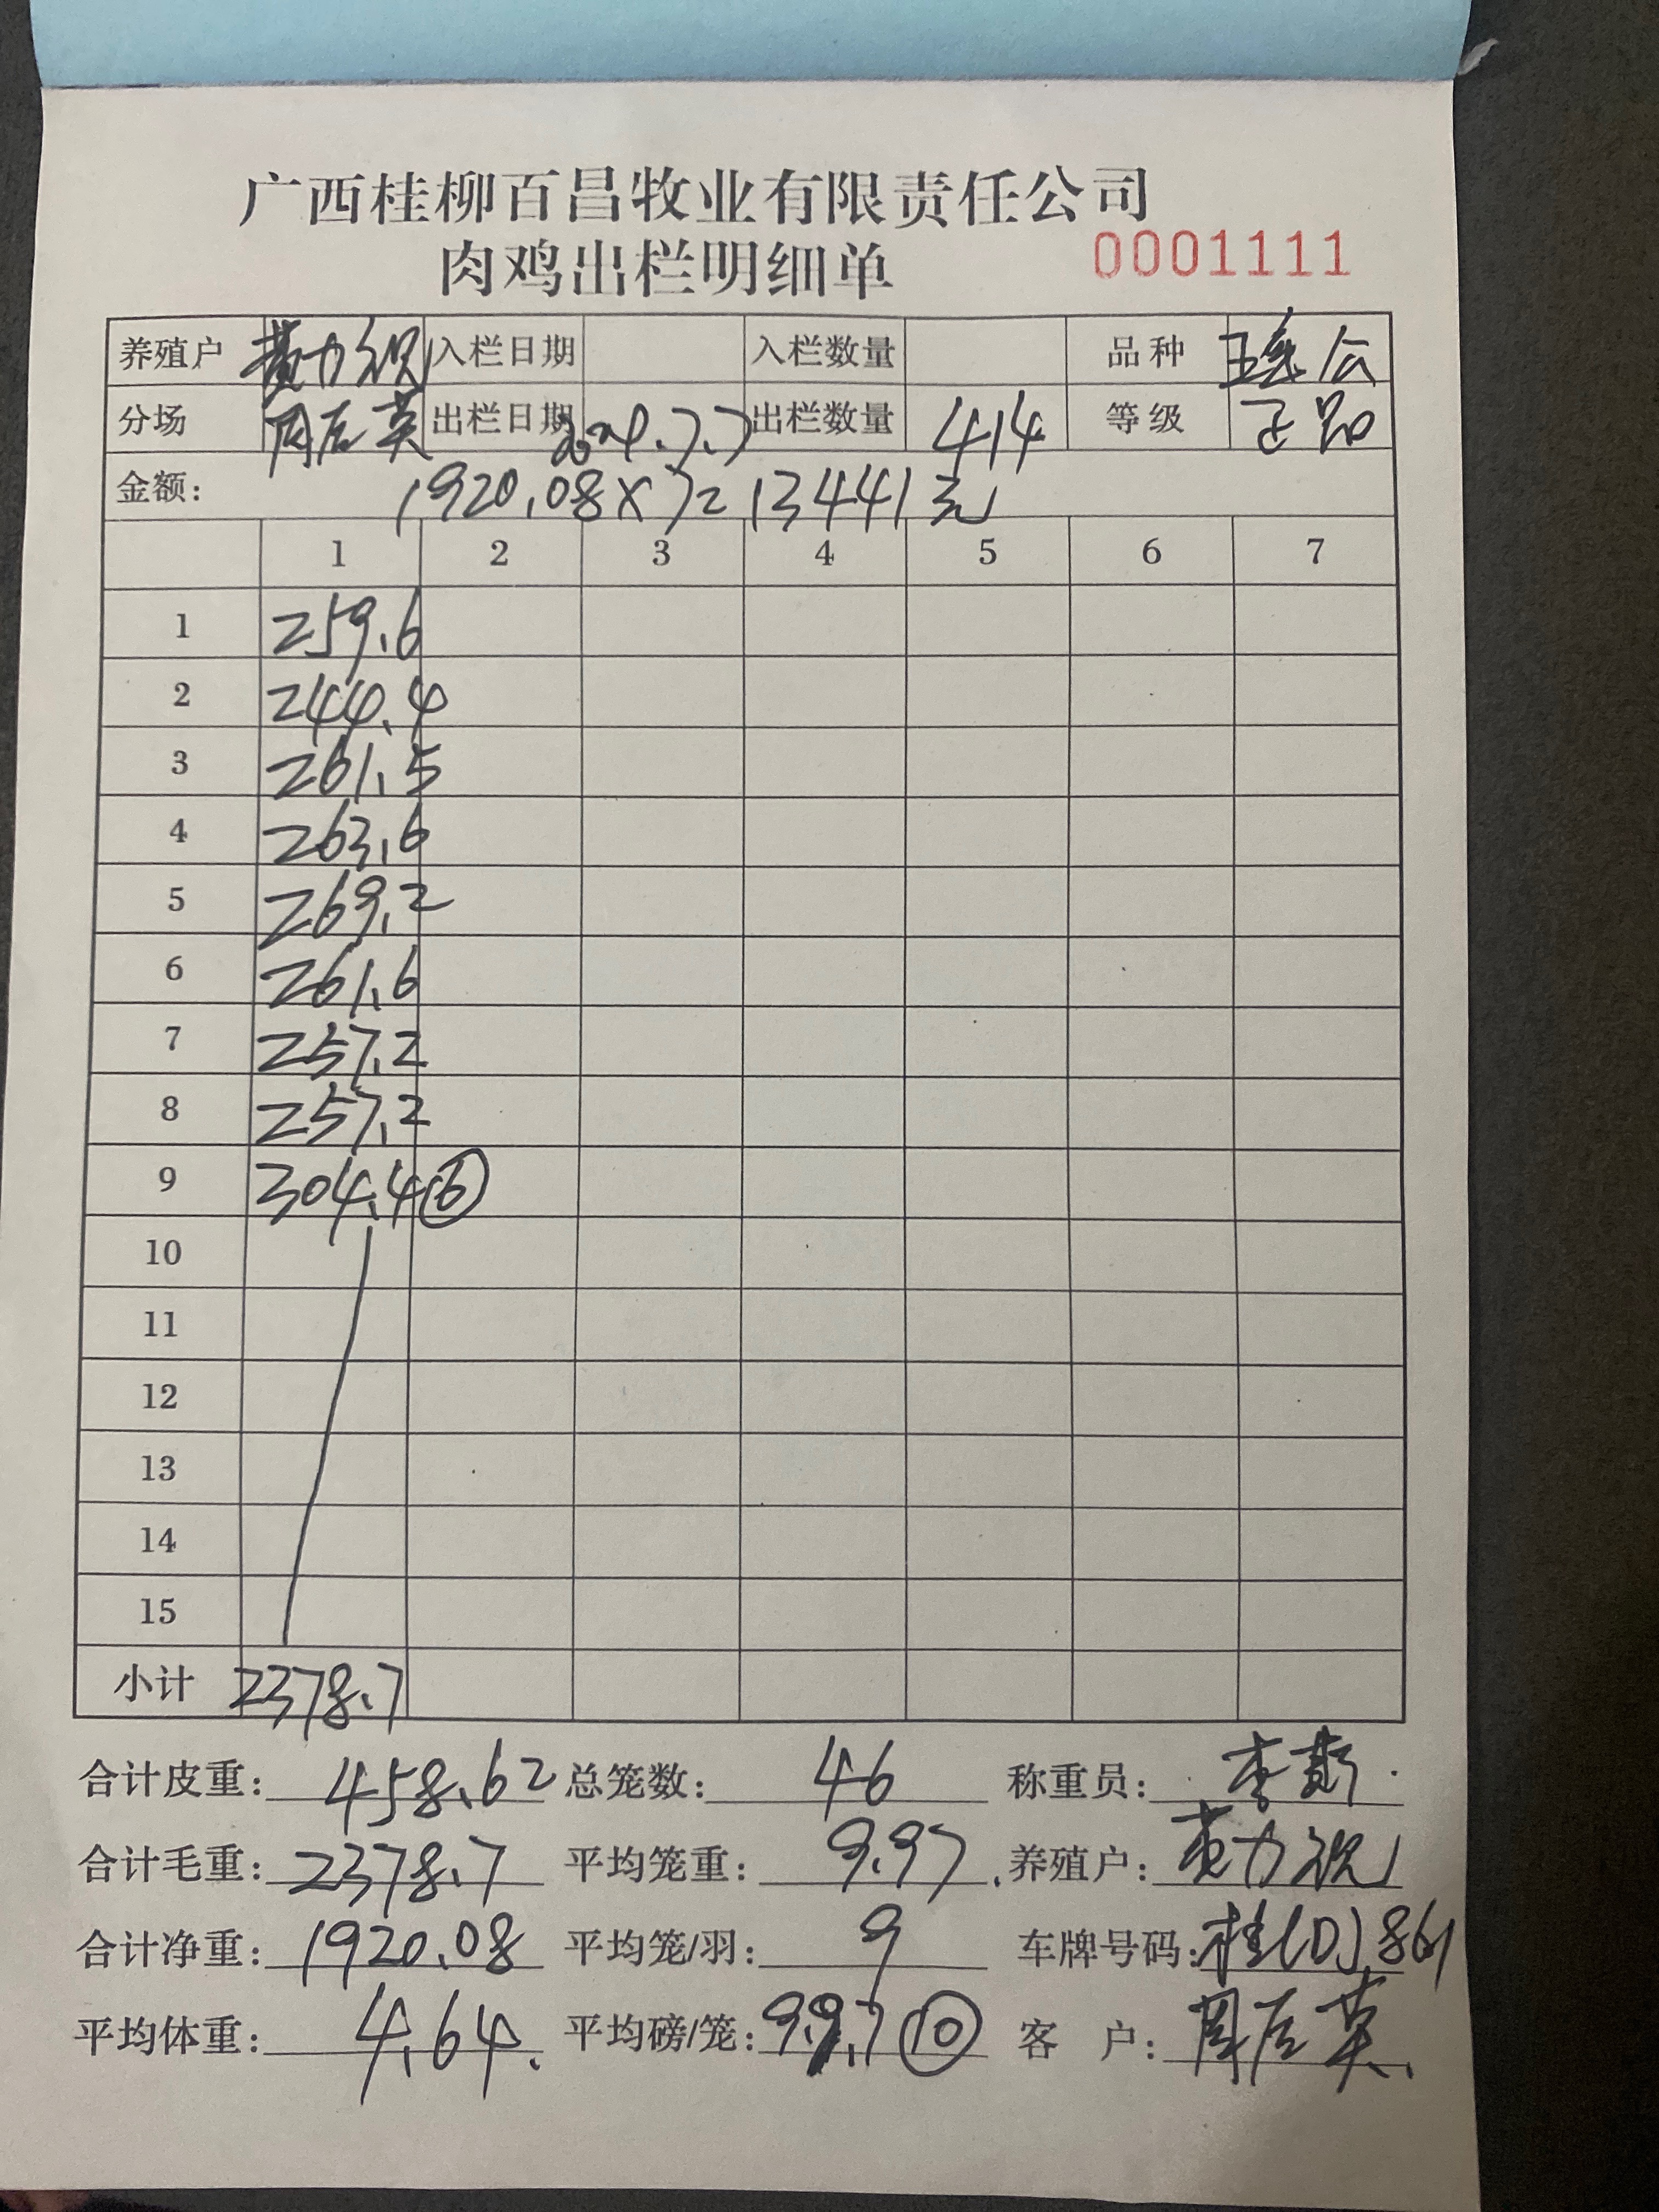 广西桂柳百昌牧业有限责任公司
肉鸡出栏明细单 0001111
养殖户 黄力 入栏日期 入栏数量 品种 公
分场 周 英 出栏日期 出栏数量 414 等级 正品
金额: 1920.08×7=13441元
1 2 3 4 5 6 7
1 259.6
2 244.4
3 261.5
4 263.6
5 269.2
6 261.6
7 257.2
8 257.2
9 304.4 ⑥
10
11
12
13
14
15
小计 2378.7
合计皮重: 458.62 总笼数: 46 称重员: 李
合计毛重: 2378.7 平均笼重: 9.97. 养殖户: 黄力
合计净重: 1920.08 平均笼/羽: 9 车牌号码: 桂
平均体重: 4.64. 平均磅/笼: 99.7 ⑩ 客 户: 周 英